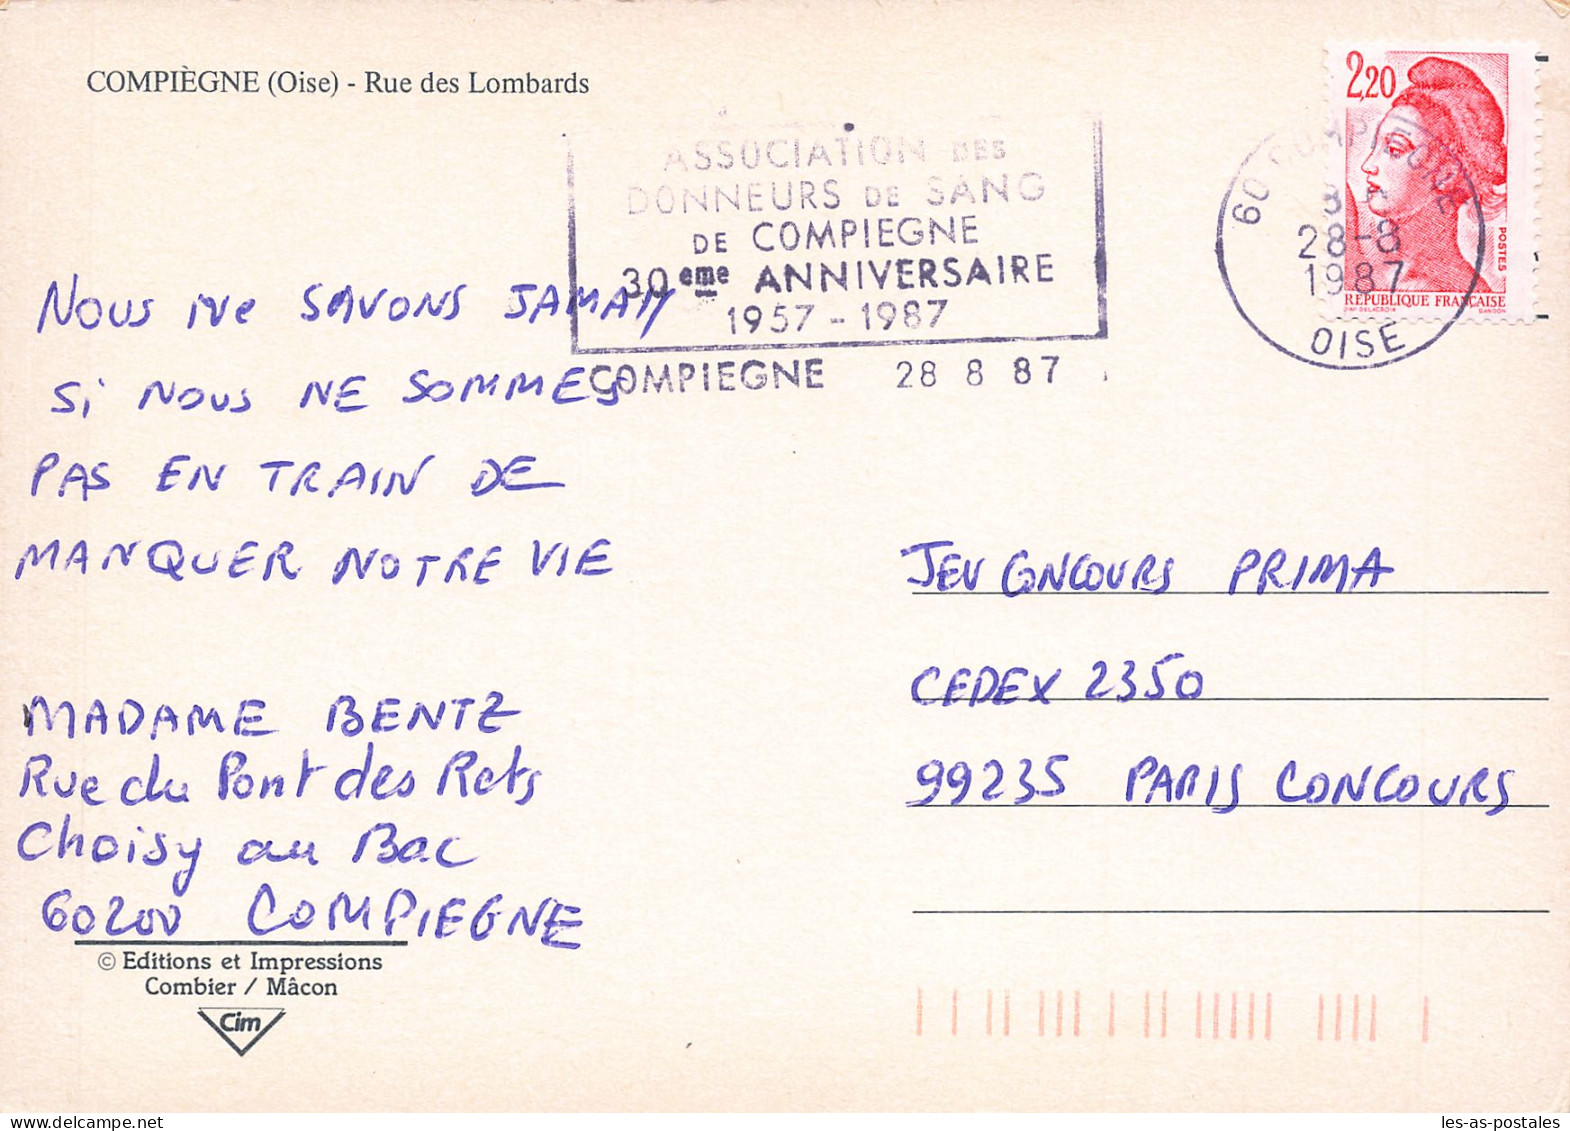 COMPIÈGNE (Oise) - Rue des Lombards
2,20
POSTES
RÉPUBLIQUE FRANÇAISE
D'AP. DELACROIX GANDON
60 COMPIEGNE
28-8
1987
OISE
ASSOCIATION DES
DONNEURS DE SANG
DE COMPIEGNE
30 eme ANNIVERSAIRE
1957 - 1987
COMPIEGNE 28 8 87
NOUS NE SAVONS JAMAIS
SI NOUS NE SOMMES
PAS EN TRAIN DE
MANQUER NOTRE VIE
MADAME BENTZ
Rue du Pont des Rets
Choisy au Bac
60200 COMPIEGNE
© Editions et Impressions
Combier / Mâcon
Cim
JEU CONCOURS PRIMA
CEDEX 2350
99235 PARIS CONCOURS
les-as-postales